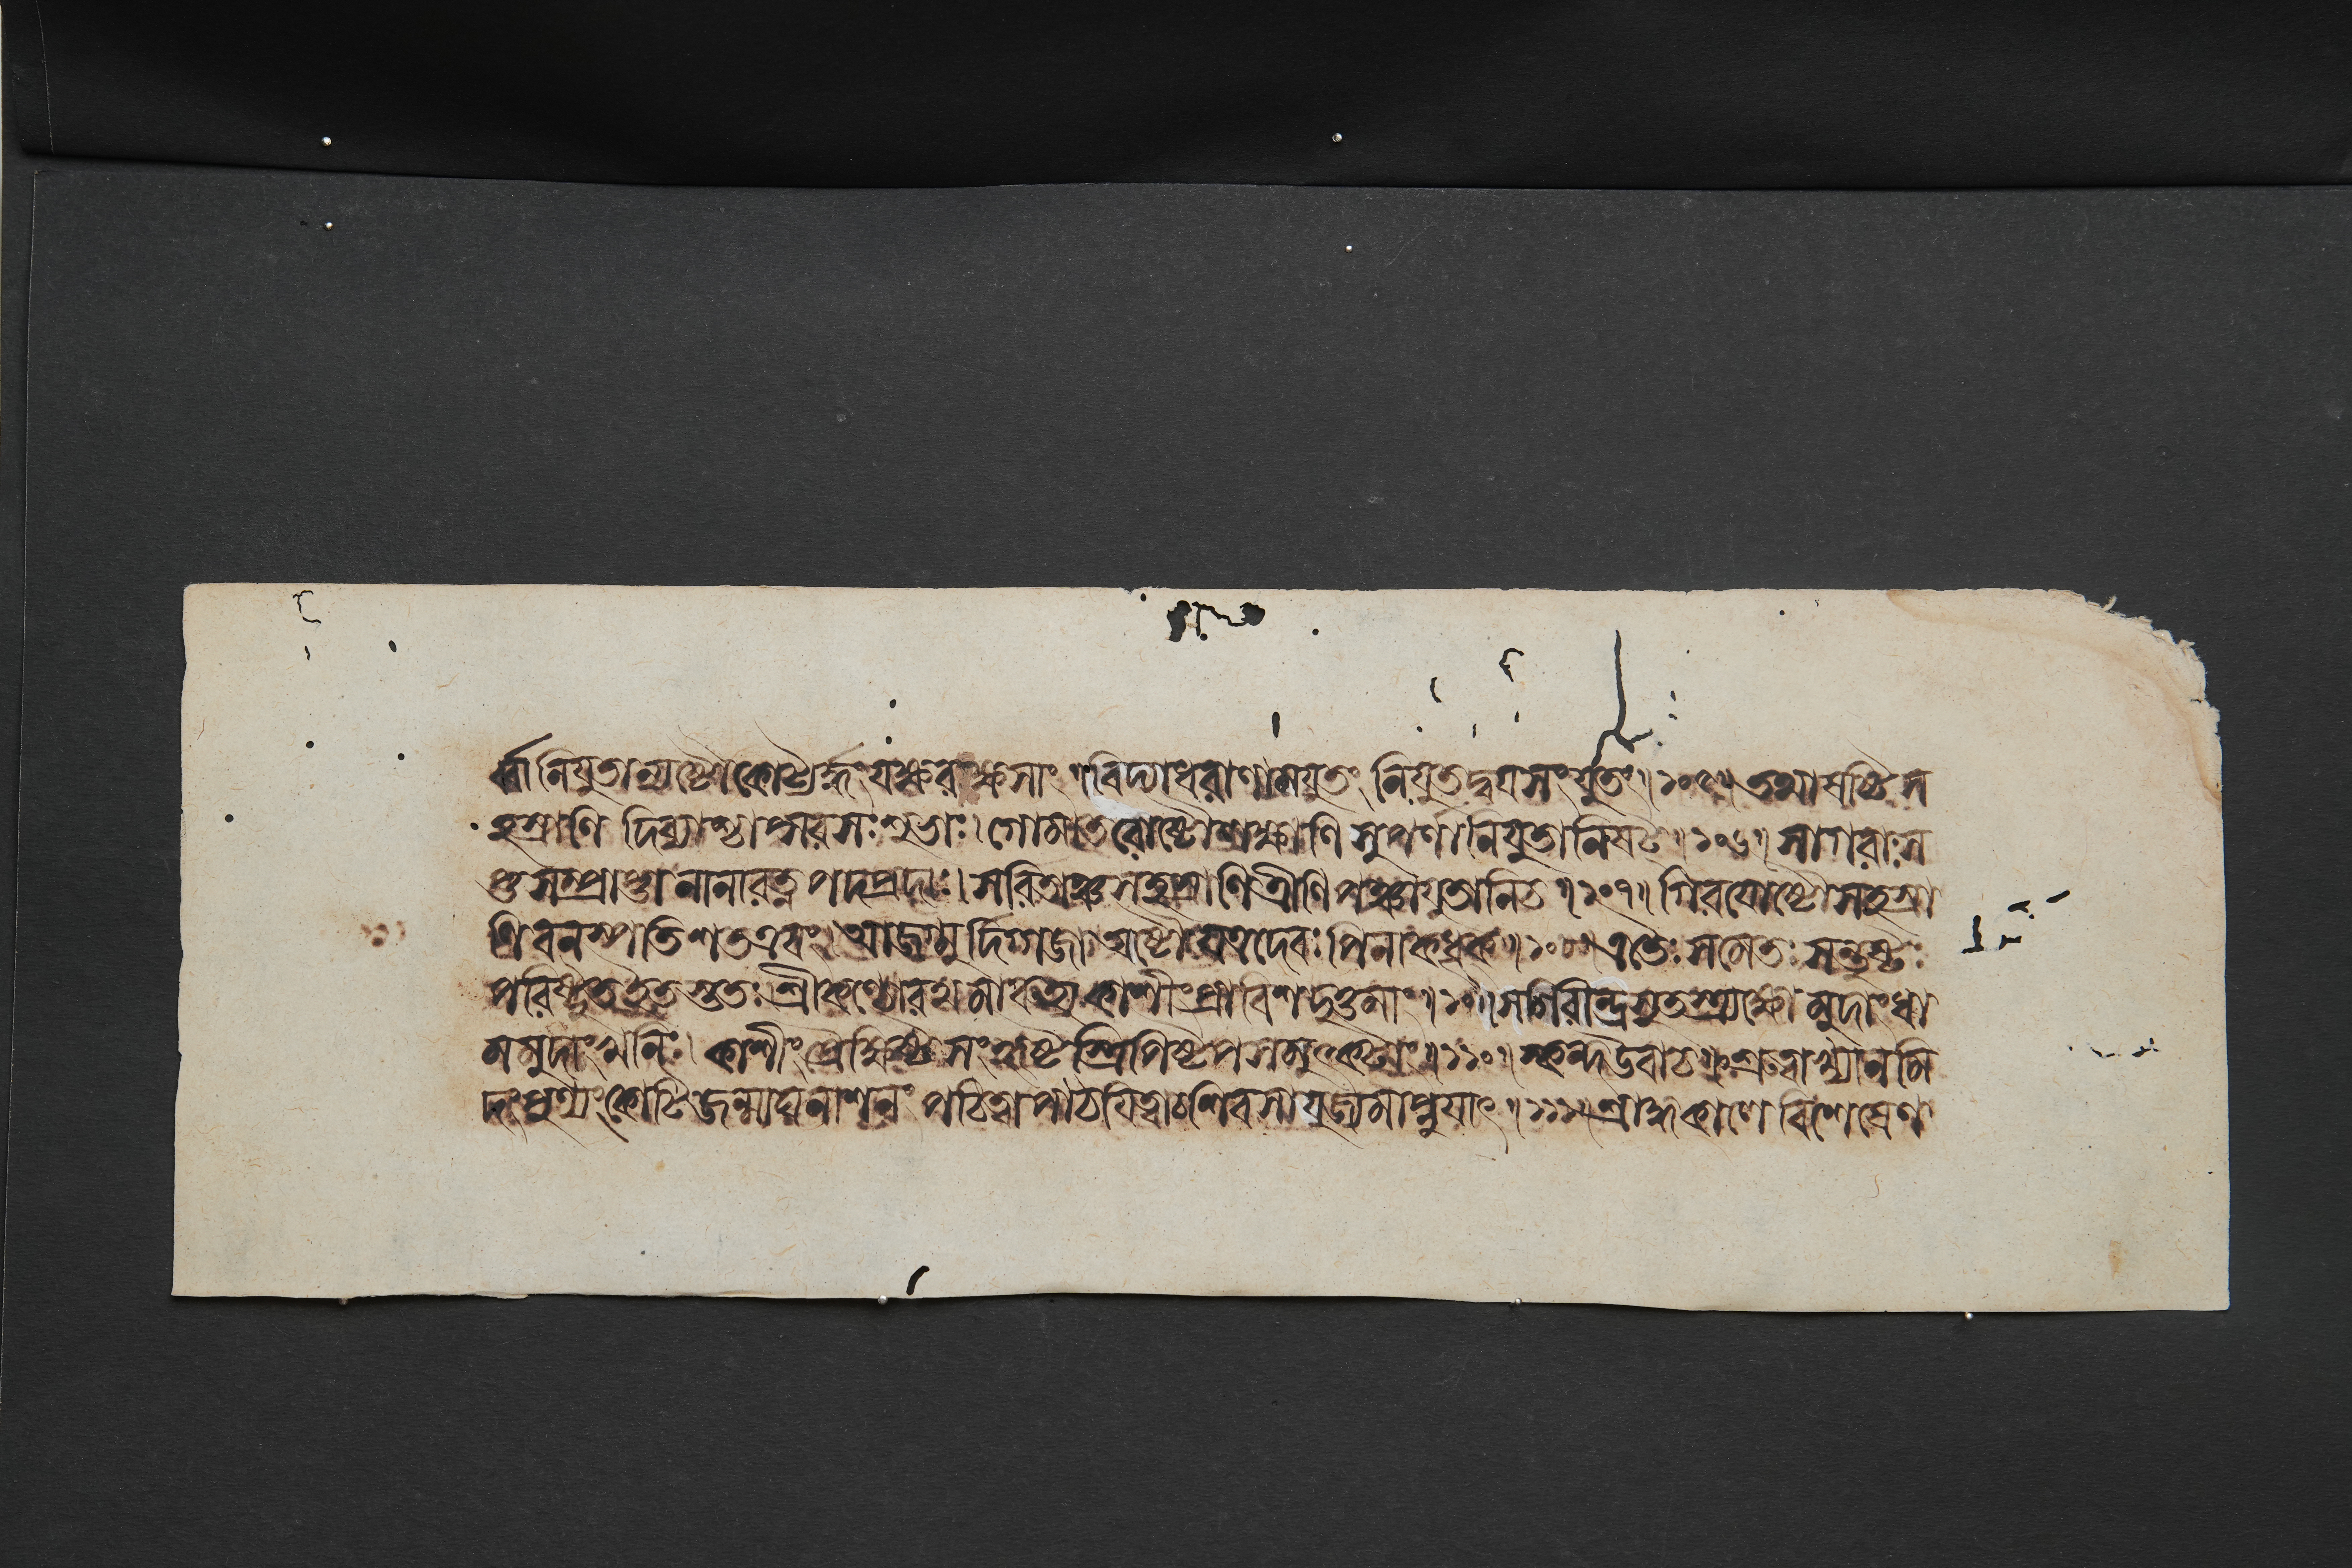 র্ব্বানিযুতান্যষ্টৌ কোট্যর্দ্ধং যক্ষরক্ষসাং ॥ বিদ্যাধরাণামযুতং নিযুতদ্বয়সংযুতং ॥ ১০৫ ॥ তথা ষষ্টিস
হস্রাণি দিব্যাশ্চাপ্সরসঃ শুভাঃ । গোমাতরোষ্টৌলক্ষাণি সুপর্ণা নিযুতানিষট্ ॥ ১০৬ ॥ সাগরাঃ স
প্তসম্প্রাপ্তা নানারত্নপদপ্রদাঃ । সরিতাঞ্চসহস্রাণি ত্রীণি পঞ্চাযুতানিচ ॥ ১০৭ ॥ গিরযোষ্টৌ সহস্রা
ণি বনস্পতিশতত্রয়ং । আজগ্মুর্দিগ্গজা অষ্টৌ যত্রদেবঃ পিনাকধৃক্ ॥ ১০৮ ॥ এতৈঃ সমেতঃ সন্তুষ্টঃ
পরিষ্টুত ইতস্ততঃ । শ্রীকণ্ঠোরথমারুহ্য কাশীং প্রাবিশদুত্তমাং ॥ ১০৯ ॥ সগিরীন্দ্রসুতস্ত্র্যক্ষো মুদাংধা
মমুদাংখনিঃ । কাশীং প্রৈক্ষিষ্ট সংহৃষ্টস্ত্রিপিষ্টপসমুৎকর্ষাং ॥ ১১০ ॥ স্কন্দউবাচ ॥ শ্রুত্বাখ্যানমি
দং পুণ্যং কোটিজন্মাঘনাশনং পঠিত্বা পাঠয়িত্বাচ শিবসাযুজ্যমাপ্নুয়াৎ ॥ ১১১ ॥ শ্রাদ্ধকালে বিশেষেণ